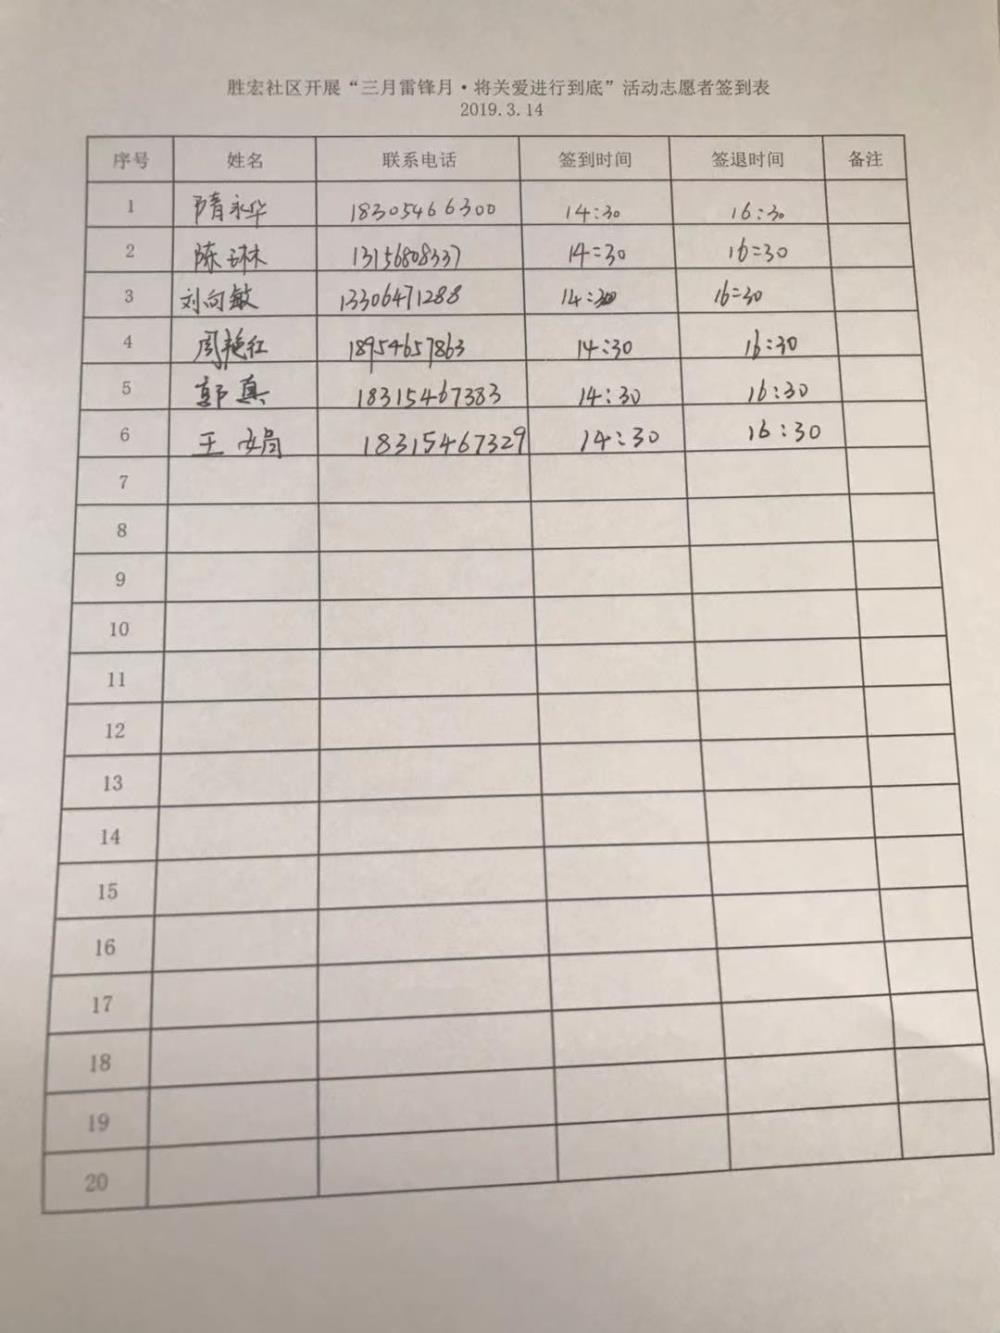 胜宏社区开展“三月雷锋月·将关爱进行到底”活动志愿者签到表
2019.3.14
序号 姓名 联系电话 签到时间 签退时间 备注
1 隋永华 18305466300 14:30 16:30
2 陈琳 13156808337 14:30 16:30
3 刘向敏 13306471288 14:30 16:30
4 周艳红 18954657863 14:30 16:30
5 郭真 18315467383 14:30 16:30
6 王 18315467329 14:30 16:30
7
8
9
10
11
12
13
14
15
16
17
18
19
20